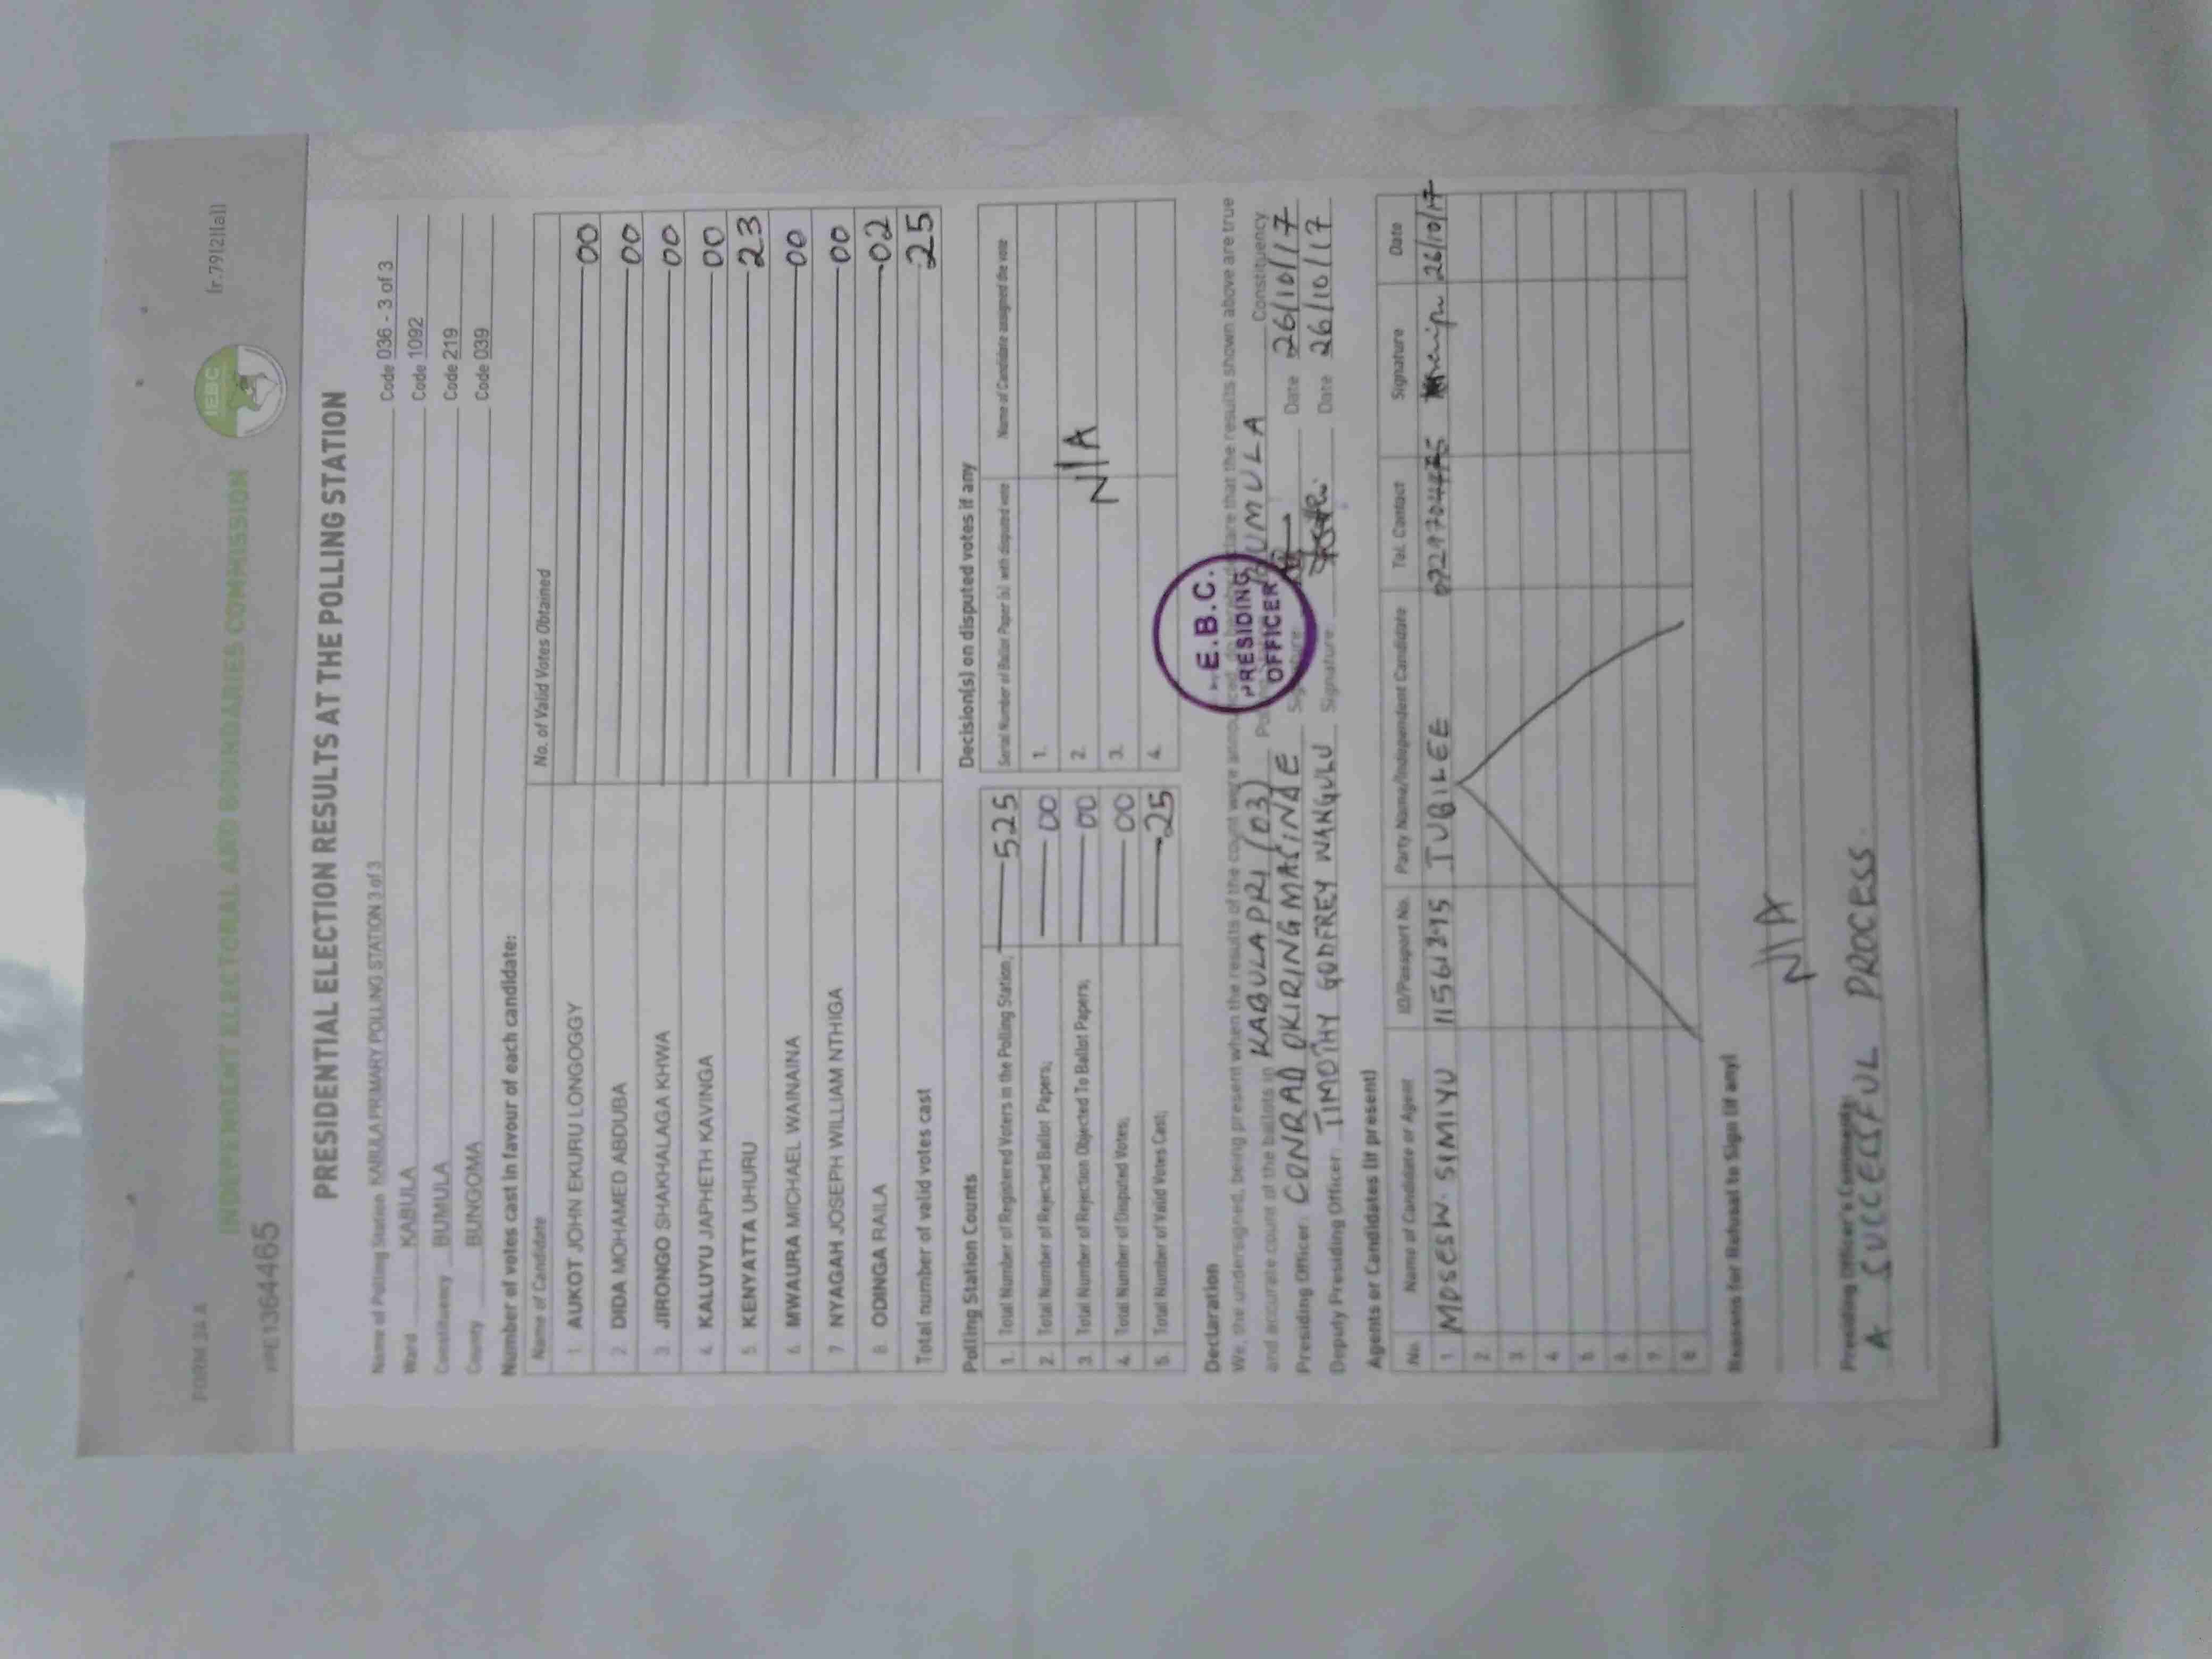 FORM 34 A
(r.79(2)(a))
INDEPENDENT ELECTORAL AND BOUNDARIES COMMISSION
IEBC
PRE1364465
PRESIDENTIAL ELECTION RESULTS AT THE POLLING STATION
Name of Polling Station KABULA PRIMARY POLLING STATION 3 of 3 Code 036 - 3 of 3
Ward KABULA Code 1092
Constituency BUMULA Code 219
County BUNGOMA Code 039
Number of votes cast in favour of each candidate:
Name of Candidate No. of Valid Votes Obtained
1. AUKOT JOHN EKURU LONGOGGY 00
2. DIDA MOHAMED ABDUBA 00
3. JIRONGO SHAKHALAGA KHWA 00
4. KALUYU JAPHETH KAVINGA 00
5. KENYATTA UHURU 23
6. MWAURA MICHAEL WAINAINA 00
7. NYAGAH JOSEPH WILLIAM NTHIGA 00
8. ODINGA RAILA 02
Total number of valid votes cast 25
Polling Station Counts
1. Total Number of Registered Voters in the Polling Station; 525
2. Total Number of Rejected Ballot Papers; 00
3. Total Number of Rejection Objected To Ballot Papers; 00
4. Total Number of Disputed Votes; 00
5. Total Number of Valid Votes Cast; 25
Decision(s) on disputed votes if any
Serial Number of Ballot Paper (s) with disputed vote Name of Candidate assigned the vote
1.
2. N/A
3.
4.
Declaration
We, the undersigned, being present when the results of the count were announced, do hereby declare that the results shown above are true
and accurate count of the ballots in KABULA PRI (03) BUMULA Constituency
I.E.B.C. PRESIDING OFFICER
Presiding Officer: CONRAD OKIRING MACINDE Signature: Date 26/10/17
Deputy Presiding Officer: TIMOTHY GODFREY WANGULU Signature: Date 26/10/17
Agents or Candidates (if present)
No. Name of Candidate or Agent ID/Passport No. Party Name/Independent Candidate Tel. Contact Signature Date
1. MOSES W. SIMIYU JUBILEE 26/10/17
2.
3.
4.
5.
6.
7.
8.
Reasons for Refusal to Sign (if any)
N/A
Presiding Officer's Comments:
A SUCCESSFUL PROCESS.